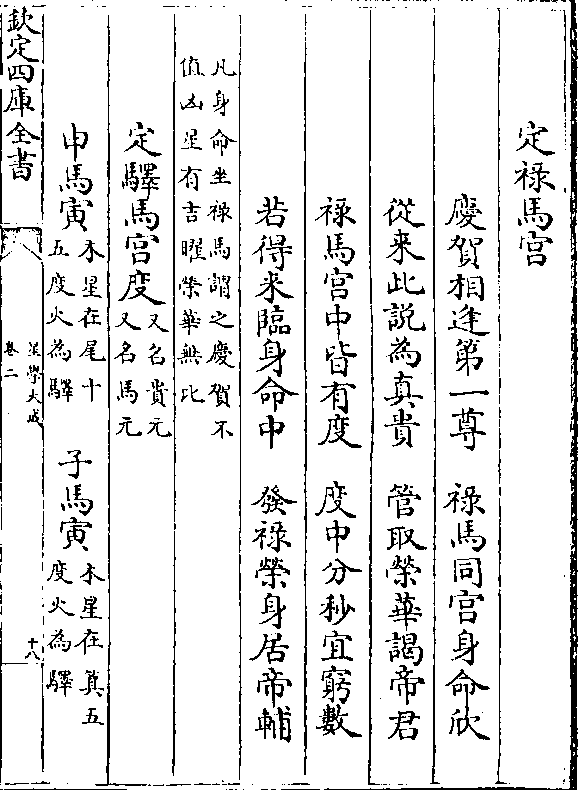 定祿馬宫
慶賀相逢第一尊　祿馬同宫身命欣
從來此説為真貴　管取榮華謁帝君
祿馬宫中皆有度　度中分秒宜窮數
若得来臨身命中　發祿榮身居帝輔
凡身命坐祿馬謂之慶賀不
值凶星有吉曜榮華無比
定驛馬宫度又名貴元
又名馬元
申馬寅木星在尾十
五度火為驛
子馬寅木星在箕五
度火為驛
欽定四庫全書
星學大成
卷二
十八